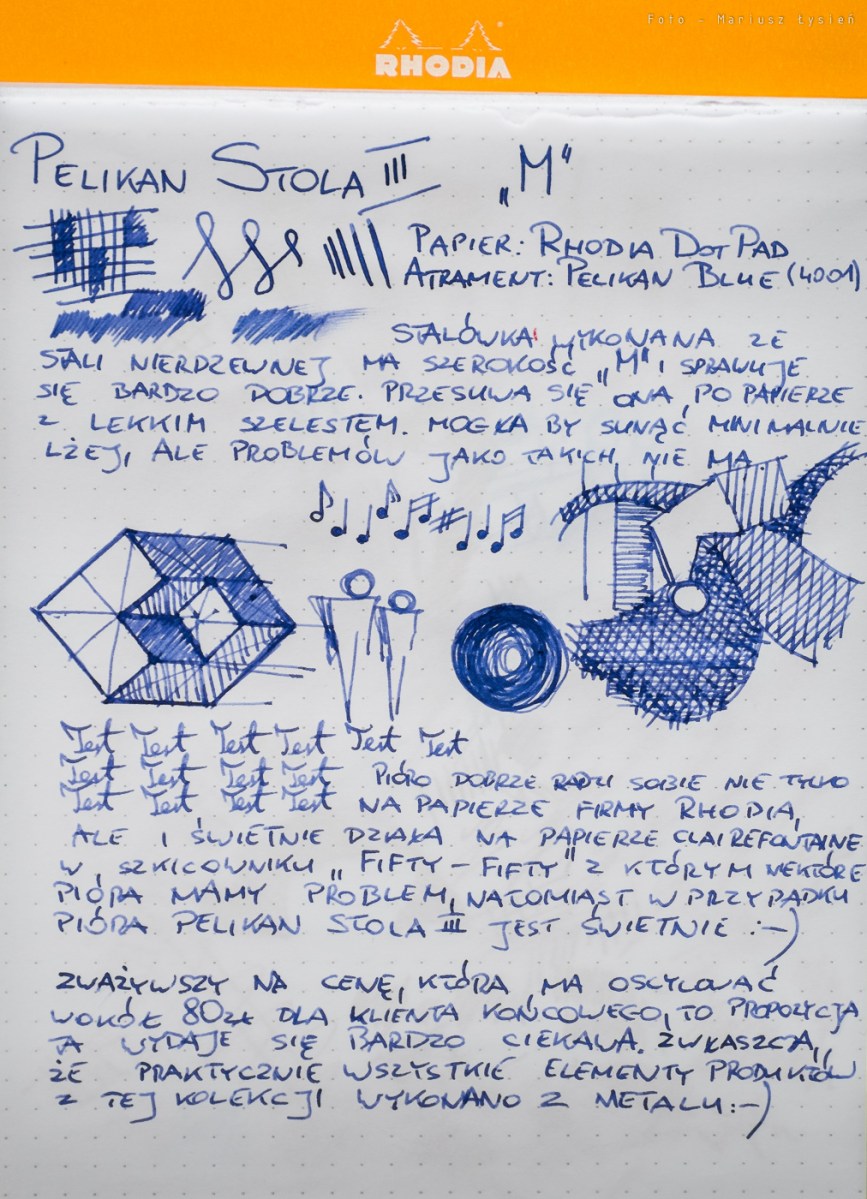 Foto - Mariusz Łysień
RHODIA
PELIKAN STOLA III „M"
PAPIER: RHODIA DOTPAD
ATRAMENT: PELIKAN BLUE (4001)
STALÓWKA WYKONANA ZE
STALI NIERDZEWNEJ MA SZEROKOŚĆ „M" I SPRAWUJE
SIĘ BARDZO DOBRZE. PRZESUWA SIĘ ONA PO PAPIERZE
Z LEKKIM SZELESTEM. MOGŁA BY SUNĄĆ MINIMALNIE
LŻEJ, ALE PROBLEMÓW JAKO TAKICH NIE MA
Test Test Test Test Test Test
Test Test Test Test PIÓRO DOBRZE RADZI SOBIE NIE TYLKO
Test Test Test Test NA PAPIERZE FIRMY RHODIA,
ALE I ŚWIETNIE DZIAŁA NA PAPIERZE CLAIREFONTAINE
W SZKICOWNIKU „FIFTY-FIFTY" Z KTÓRYM NIEKTÓRE
PIÓRA MAMY PROBLEM, NATOMIAST W PRZYPADKU
PIÓRA PELIKAN STOLA III JEST ŚWIETNIE :-)
ZWAŻYWSZY NA CENĘ, KTÓRA MA OSCYLOWAĆ
WOKÓŁ 80ZŁ DLA KLIENTA KOŃCOWEGO, TO PROPOZYCJA
TA WYDAJE SIĘ BARDZO CIEKAWA. ZWŁASZCZA,
ŻE PRAKTYCZNIE WSZYSTKIE ELEMENTY PRODUKTÓW
Z TEJ KOLEKCJI WYKONANO Z METALU :-)